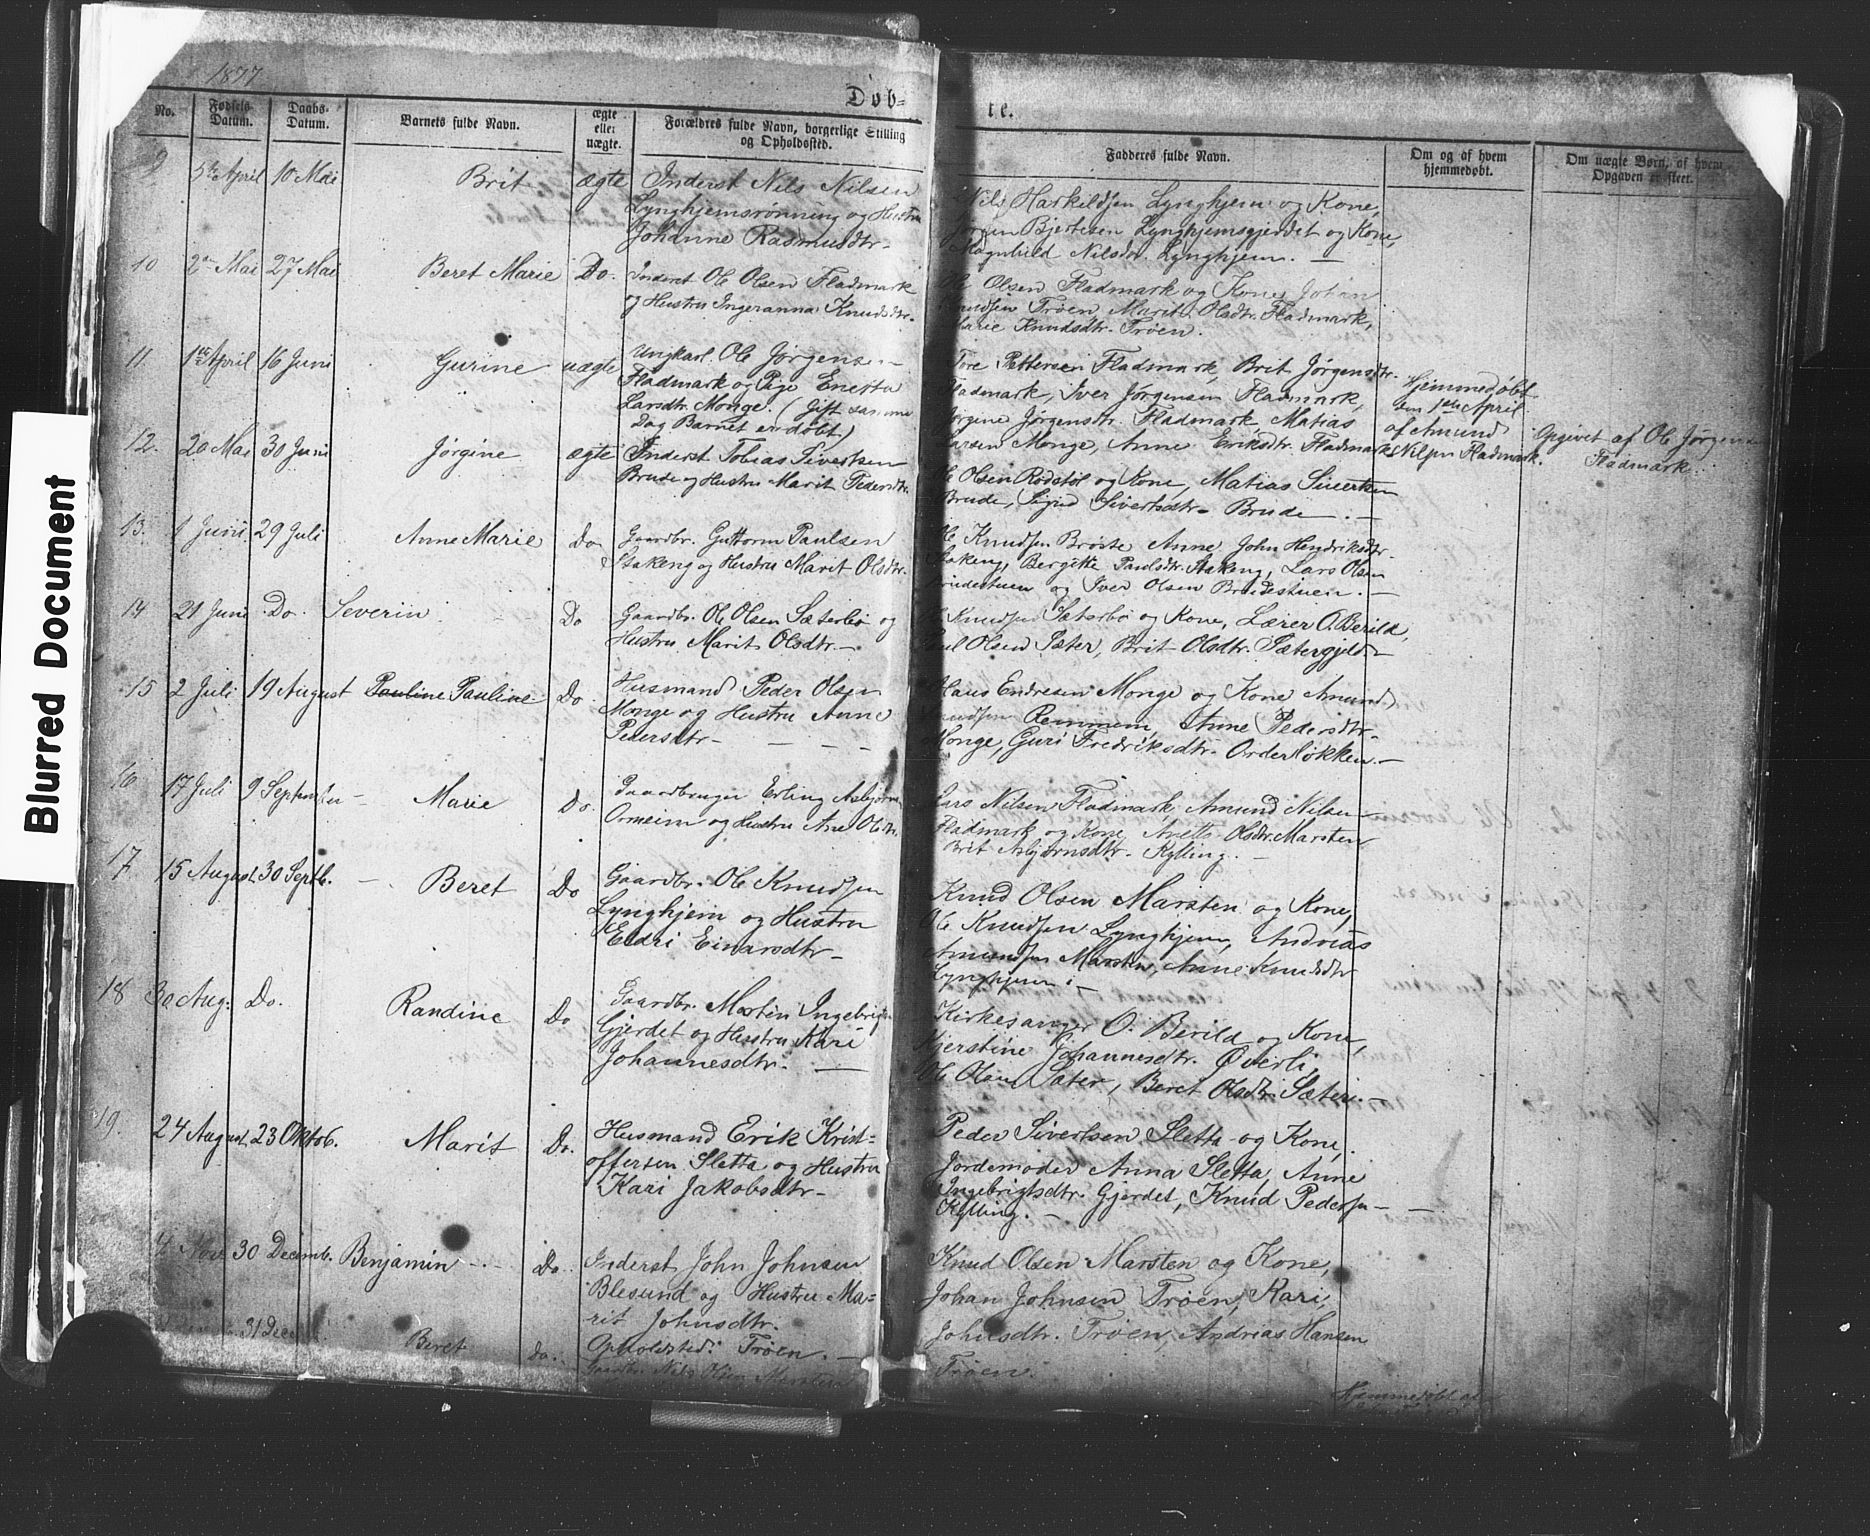 1877
Døb=
te.
No.
Fødsels-
Datum.
Daabs-
Datum.
Barnets fulde Navn.
ægte
eller
uægte.
Forældres fulde Navn, borgerlige Stilling
og Opholdssted.
Fadderes fulde Navn.
Om og af hvem
hjemmedøbt.
Om uægte Børn, af hvem
Opgaven er skeet.
9 5te April 10 Mai Brit ægte Inderst Nils Nilsen
Lynghjemsrønning og Hustru
Johanne Rasmusdtr-
Nils Harkildsen Lynghjem og Kone,
Jørgen Bjertesen Lynghjemsgjerdet og Kone,
Magnhild Nilsdtr. Lynghjem. —
10 2den Mai 27 Mai Beret Marie Do. Inderst Ole Olsen Fladmark
og Hustru Ingeranna Knudsdtr.
Ole Olsen Fladmark og Kone, Johan
Knudsen Trøen, Marit Olsdtr. Fladmark,
Marie Knudsdtr. Trøen.
11. 1ste April 16 Juni Gurine uægte Ungkarl Ole Jørgensen
Fladmark og Pige Enetta
Larsdtr. Monge. (Gift samme
Dag Barnet er døbt)
Tore Pettersen Fladmark, Brit Jørgensdtr.
Fladmark, Iver Jørgensen Fladmark,
Jørgine Jørgensdtr. Fladmark, Matias
Larsen Monge, Anne Eriksdtr. Fladmark
Hjemmedøbt
den 1ste April
af Amund
Nilsen Fladmark.
Opgivet af Ole Jørgensen
Fladmark.
12. 20 Mai 30 Juni Jørgine ægte Inderst Tobias Sivertsen
Brude og Hustru Marit Pedersdtr.
Ole Olsen Rødstøl og Kone, Matias Sivertsen
Brude, Sigrid Sivertsdtr- Brude. —
13. 1 Juni 29 Juli Anne Marie Do Gaardbr. Guttorm Paulsen
Stakeng og Hustru Marit Olsdtr.
Ole Knudsen Brøste, Anne John Hendriksdtr.
Stakeng, Bergitte Paulsdtr. Stakeng, Lars Olsen
Brudestuen og Iver Olsen Brudestuen. —
14 21 Juni Do. Severin Do Gaardbr. Ole Olsen Sæterbø og
Hustru Marit Olsdtr.—
Knudsen Sæterbø og Kone, Lærer O. Berild,
Paul Olsen Sæter, Brit Olsdtr. Sætergjeld.—
15 2 Juli 19 August Pauline Pauline Do Husmand Peder Olsen
Monge og Hustru Anne
Pedersdtr- — - -
Hans Endresen Monge og Kone Amund
Knudsen Remmem, Anne Pedersdtr-
Monge, Guri Fredriksdtr- Orderløkken.—
16 17 Juli 9 September — Marie Do. Gaardbruger Erling Asbjørnsen
Ormeim og Hustru Ane Olsdtr.
Lars Nilsen Fladmark, Amund Nilsen
Fladmark og Kone, Anetta Olsdtr. Marsten
Brit Asbjørnsdtr- Kylling. —
17 15 August 30 Septb. — Beret Do Gaardbr. Ole Knudsen
Lynghjem og Hustru
Eldri Einarsdtr-
Knud Olsen Marsten og Kone,
Ole Knudsen Lynghjem, Andreas
Amundsen Marsten, Anne Knudsdtr
Lynghjem.—
18 30 Aug: Do. Randine Do Gaardbr. Martin Ingebrigts.
Gjerdet og Hustru Kari
Johannesdtr. —
Kirkesanger O. Berild og Kone,
Kjerstine Johannesdtr. Øverli,
Ole Olsen Sæter, Beret Olsdtr. Sæter.—
19. 24 August 23 Oktob. Marit Do. Husmand Erik Krist=
offersen Sletta og Hustru
Kari Jakobsdtr-
Peder Sivertsen Sletta og Kone,
Jordemoder Anna Sletta, Anne
Ingebrigtsdtr. Gjerdet, Knud Pedersen —
Kylling. —
4 Nov. 30 Decemb. Benjamin -.- Do. Inderst John Johnsen
Blesund og Hustru Ma=
rit Johnsdtr.
Opholdsted: Trøen. —
Knud Olsen Marsten og Kone,
Johan Johnsen Trøen, Kari,
Johnsdtr. Trøen, Andrias Hansen
Trøen.
31 Decemb. Beret do. Gaardbr. Nils Olsen Marsten
Hjemmedøbt af
Blurred Document